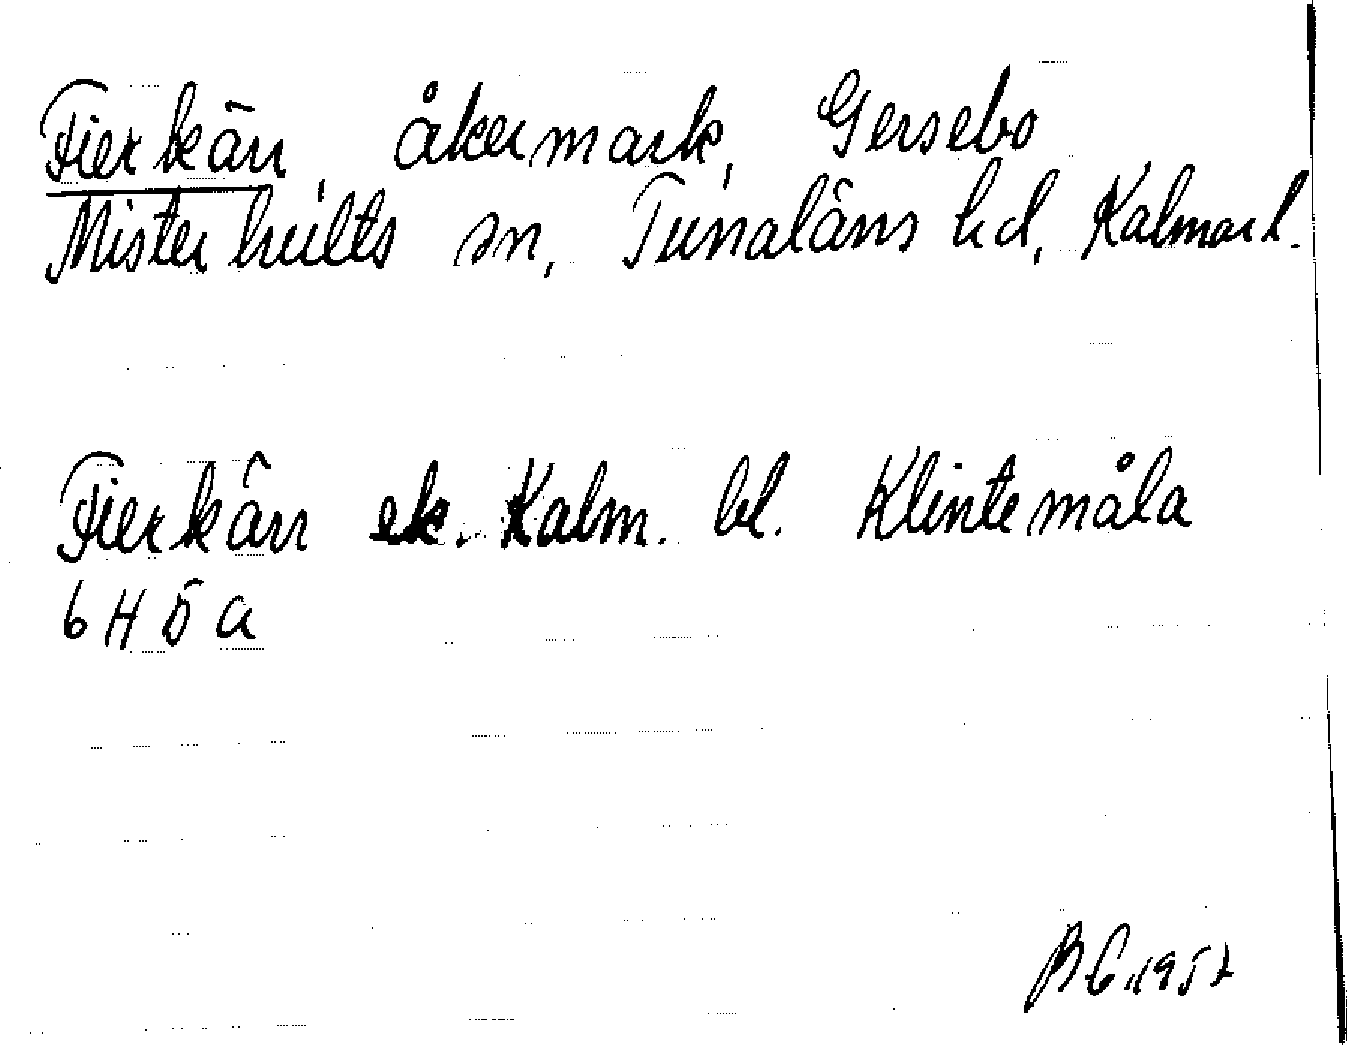 Fierkärr, åkermark, Gersebo
Misterhults sn, Tunaläns hd, Kalmar l.
Fierkärr ek. Kalm. bl. Klintemåla
6H5a
BG 1957